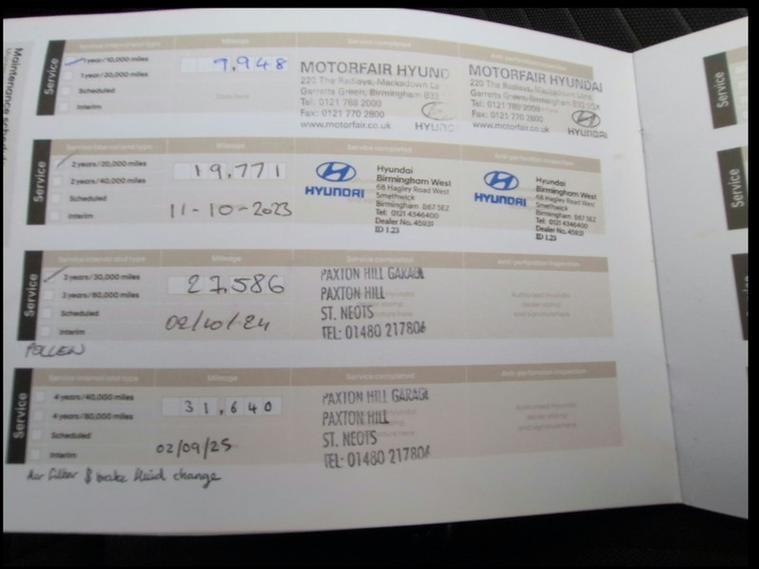 Maintenance
Service
Service interval and type Mileage Service completed Anti-perforation inspection
1 year/10,000 miles 9,948
1 year/20,000 miles
Scheduled
Interim
MOTORFAIR HYUND
Garretts Green, Birmingham B33
Tel: 0121 788 2000
Fax: 0121 770 2800
www.motorfair.co.uk
HYUNDAI
MOTORFAIR HYUNDAI
Garretts Green, Birmingham B33
Tel: 0121 788 2000
Fax: 0121 770 2800
www.motorfair.co.uk
HYUNDAI
Service
Service interval and type Mileage Service completed Anti-perforation inspection
2 years/20,000 miles 19,771
2 years/40,000 miles
Scheduled
Interim 11-10-2023
HYUNDAI
Hyundai
Birmingham West
68 Hagley Road West
Smethwick
Birmingham B67 5EZ
Tel: 0121 4346400
Dealer No. 45931
ID 1.23
HYUNDAI
Hyundai
Birmingham West
68 Hagley Road West
Smethwick
Birmingham B67 5EZ
Tel: 0121 4346400
Dealer No. 45931
ID 1.23
Service
Service interval and type Mileage Service completed Anti-perforation inspection
3 years/30,000 miles 27,586
3 years/60,000 miles
Scheduled
Interim 02/10/24
POLLEN
PAXTON HILL GARAGE
PAXTON HILL
ST. NEOTS
TEL: 01480 217806
Authorised Hyundai
dealer stamp
and signature here
Service
Service interval and type Mileage Service completed Anti-perforation inspection
4 years/40,000 miles 31,640
4 years/80,000 miles
Scheduled
Interim 02/09/25
Air filter & brake fluid change
PAXTON HILL GARAGE
PAXTON HILL
ST. NEOTS
TEL: 01480 217806
Authorised Hyundai
dealer stamp
and signature here
Service
Service
Service